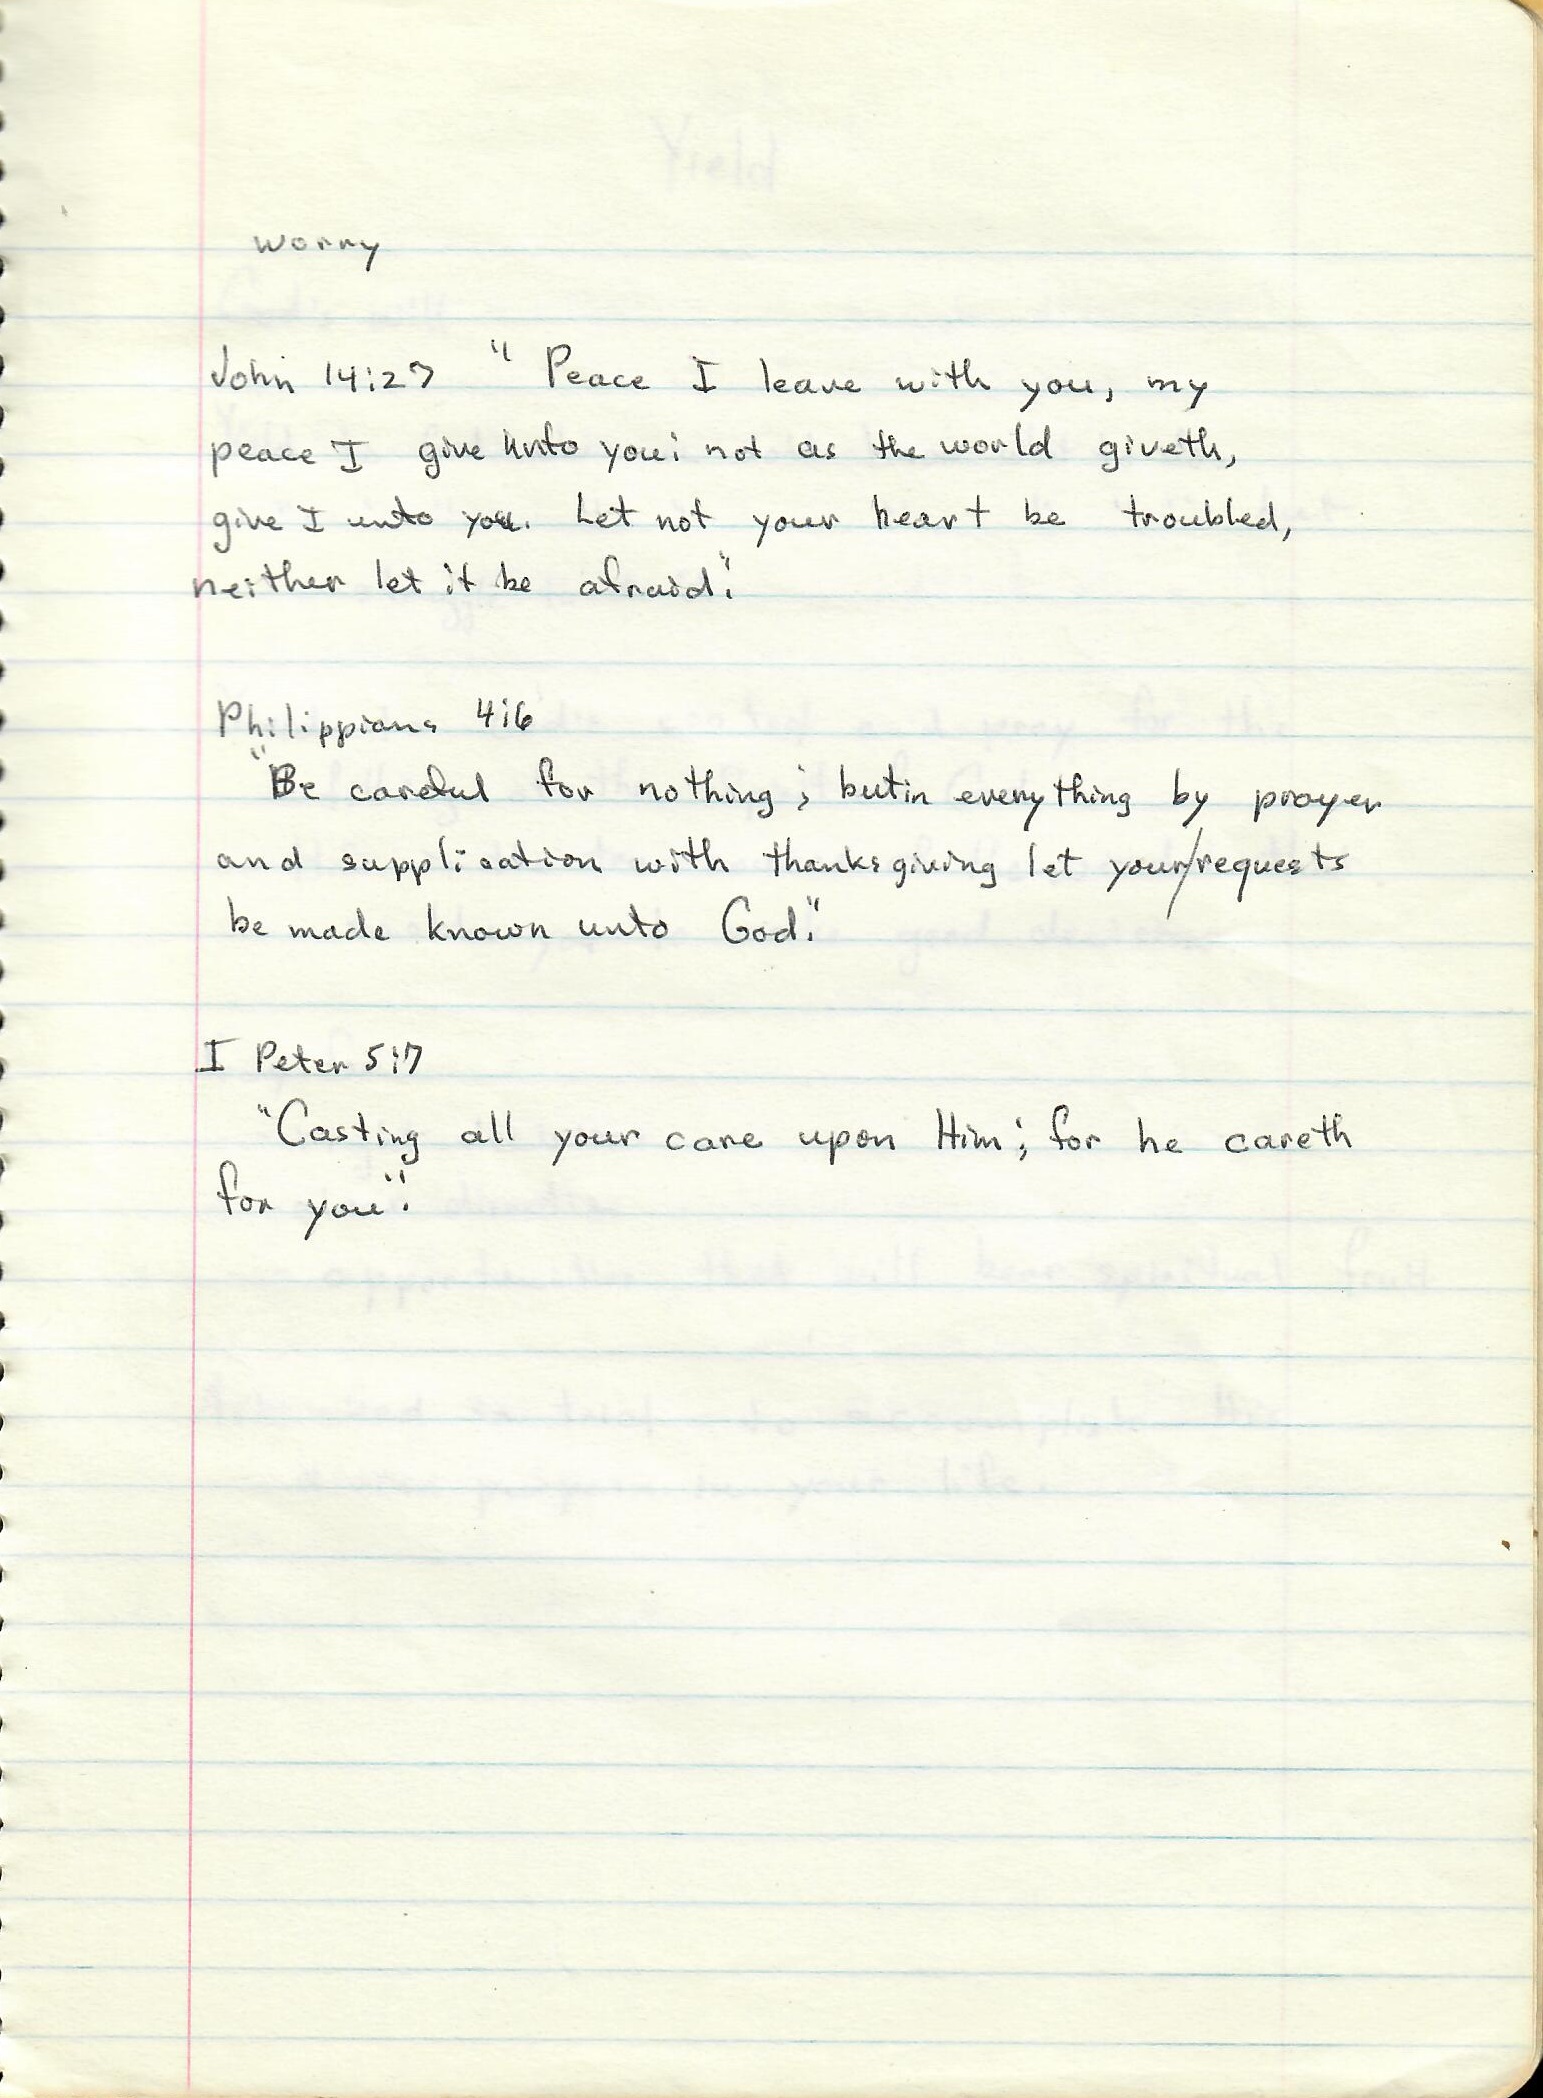 Yield
worry
John 14:27 " Peace I leave with you, my
peace I give unto you: not as the world giveth,
give I unto you. Let not your heart be troubled,
neither let it be afraid."
Philippians 4:6
"Be careful for nothing; but in everything by prayer
and supplication with thanksgiving let your/requests
be made known unto God."
I Peter 5:7
"Casting all your care upon Him; for he careth
for you".